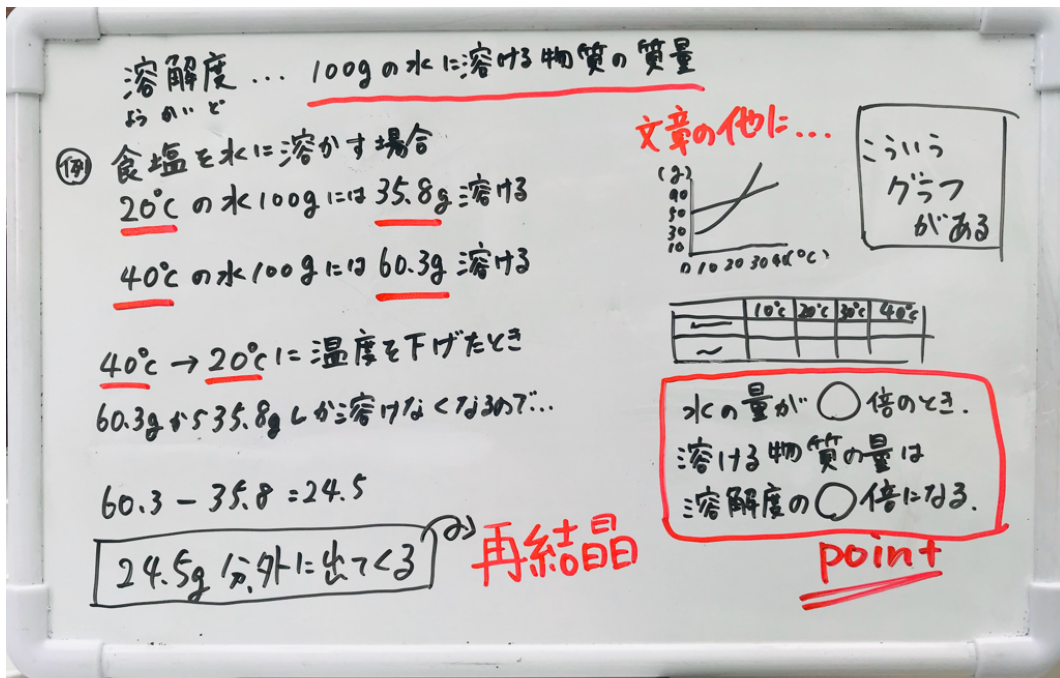 溶解度…100gの水に溶ける物質の質量
ようかいど
例 食塩を水に溶かす場合
20℃の水100gには35.8g溶ける
40℃の水100gには60.3g溶ける
40℃→20℃に温度を下げたとき
60.3gから35.8gしか溶けなくなるので…
60.3－35.8=24.5
24.5g分、外に出てくる
再結晶
文章の他に…
(g)
90
50
30
10
0 10 20 30 40(℃)
こういう
グラフ
がある
10℃ 20℃ 30℃ 40℃
水の量が○倍のとき.
溶ける物質の量は
溶解度の○倍になる.
point